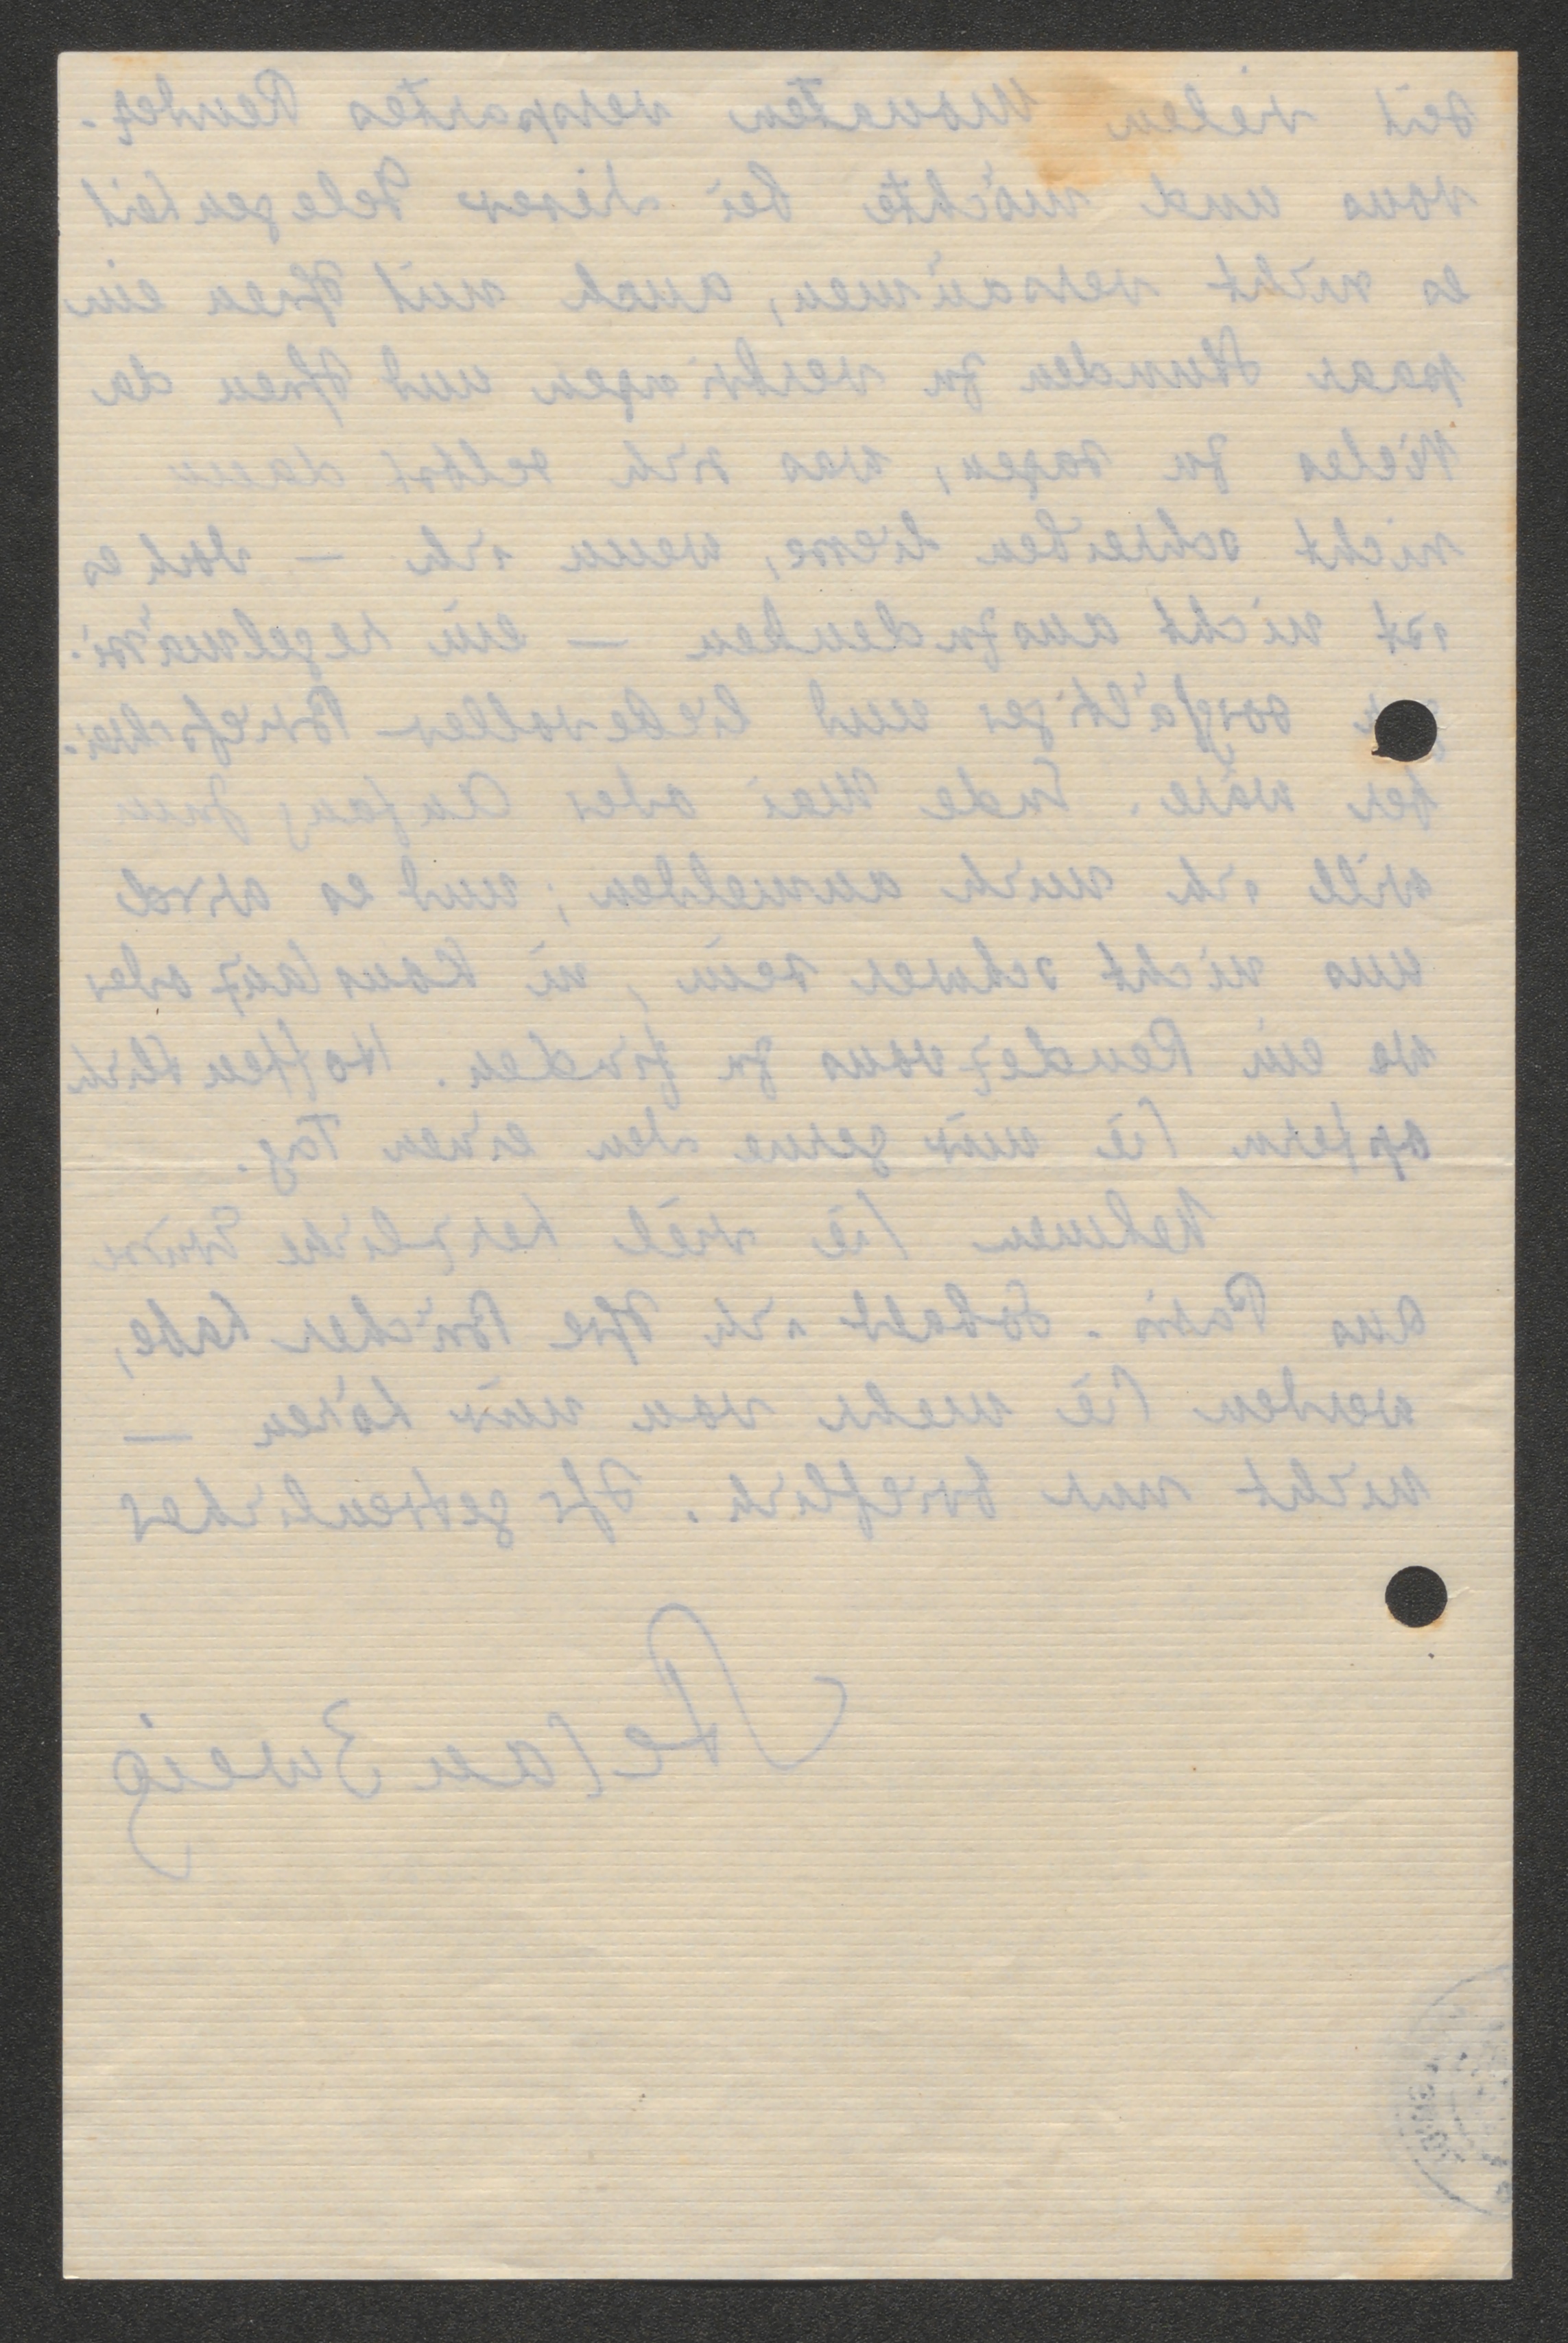 seit vielen Monaten verspartes Rendez-
vous und möchte bei dieser Gelegenheit
es nicht versäumen, auch mit Ihnen ein
paar Stunden zu verbringen und Ihnen da
Vieles zu sagen, was sich selbst dann
nicht schreiben liesse, wenn ich – doch es
ist nicht auszudenken – ein regelmässi-
sorgfältiger und liebevoller Briefschrei-
ber wäre. Ende Mai oder Anfang Juni
will ich mich anmelden; und es wird
uns nicht schwer sein, in Konstanz oder
wo ein Rendezvous zu finden. Hoffentlich
opfern Sie mir gerne den einen Tag.
Nehmen Sie viel herzliche Grüsse
aus Paris. Sobald ich Ihre Bücher habe,
werden Sie mehr von mir hören –
nicht nur brieflich. Ihr getreulicher
Stefan Zweig